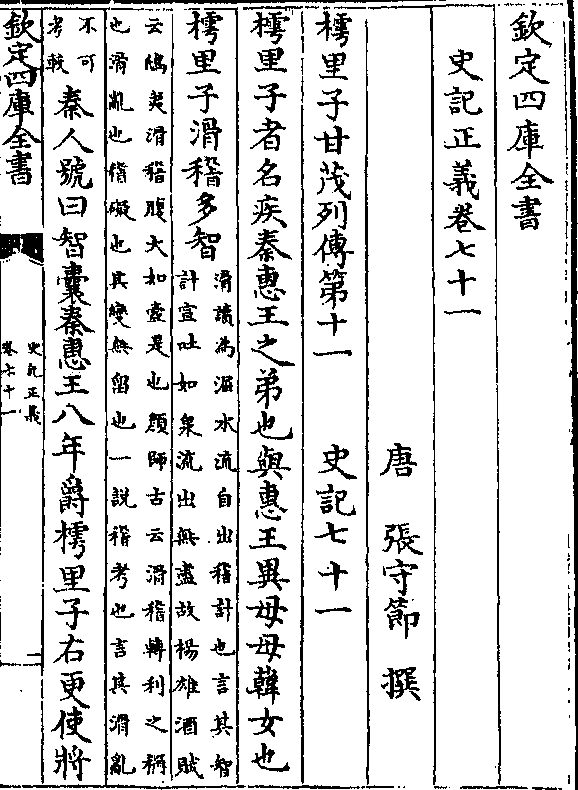 欽定四庫全書
史記正義卷七十一
唐 張守節 撰
樗里子甘茂列傳第十一 史記七十一
樗里子者名疾秦惠王之弟也與惠王異母母韓女也
樗里子滑稽多智
滑讀為淈水流自出稽計也言其智
計宣吐如泉流出無盡故楊雄酒賦
云鴟夷滑稽腹大如壺是也顔師古云滑稽轉利之稱
也滑亂也稽礙也其變無留也一説稽考也言其滑亂
不可
考較
秦人號曰智囊秦惠王八年爵樗里子右更使將
欽定四庫全書
史記正義
卷七十一
二